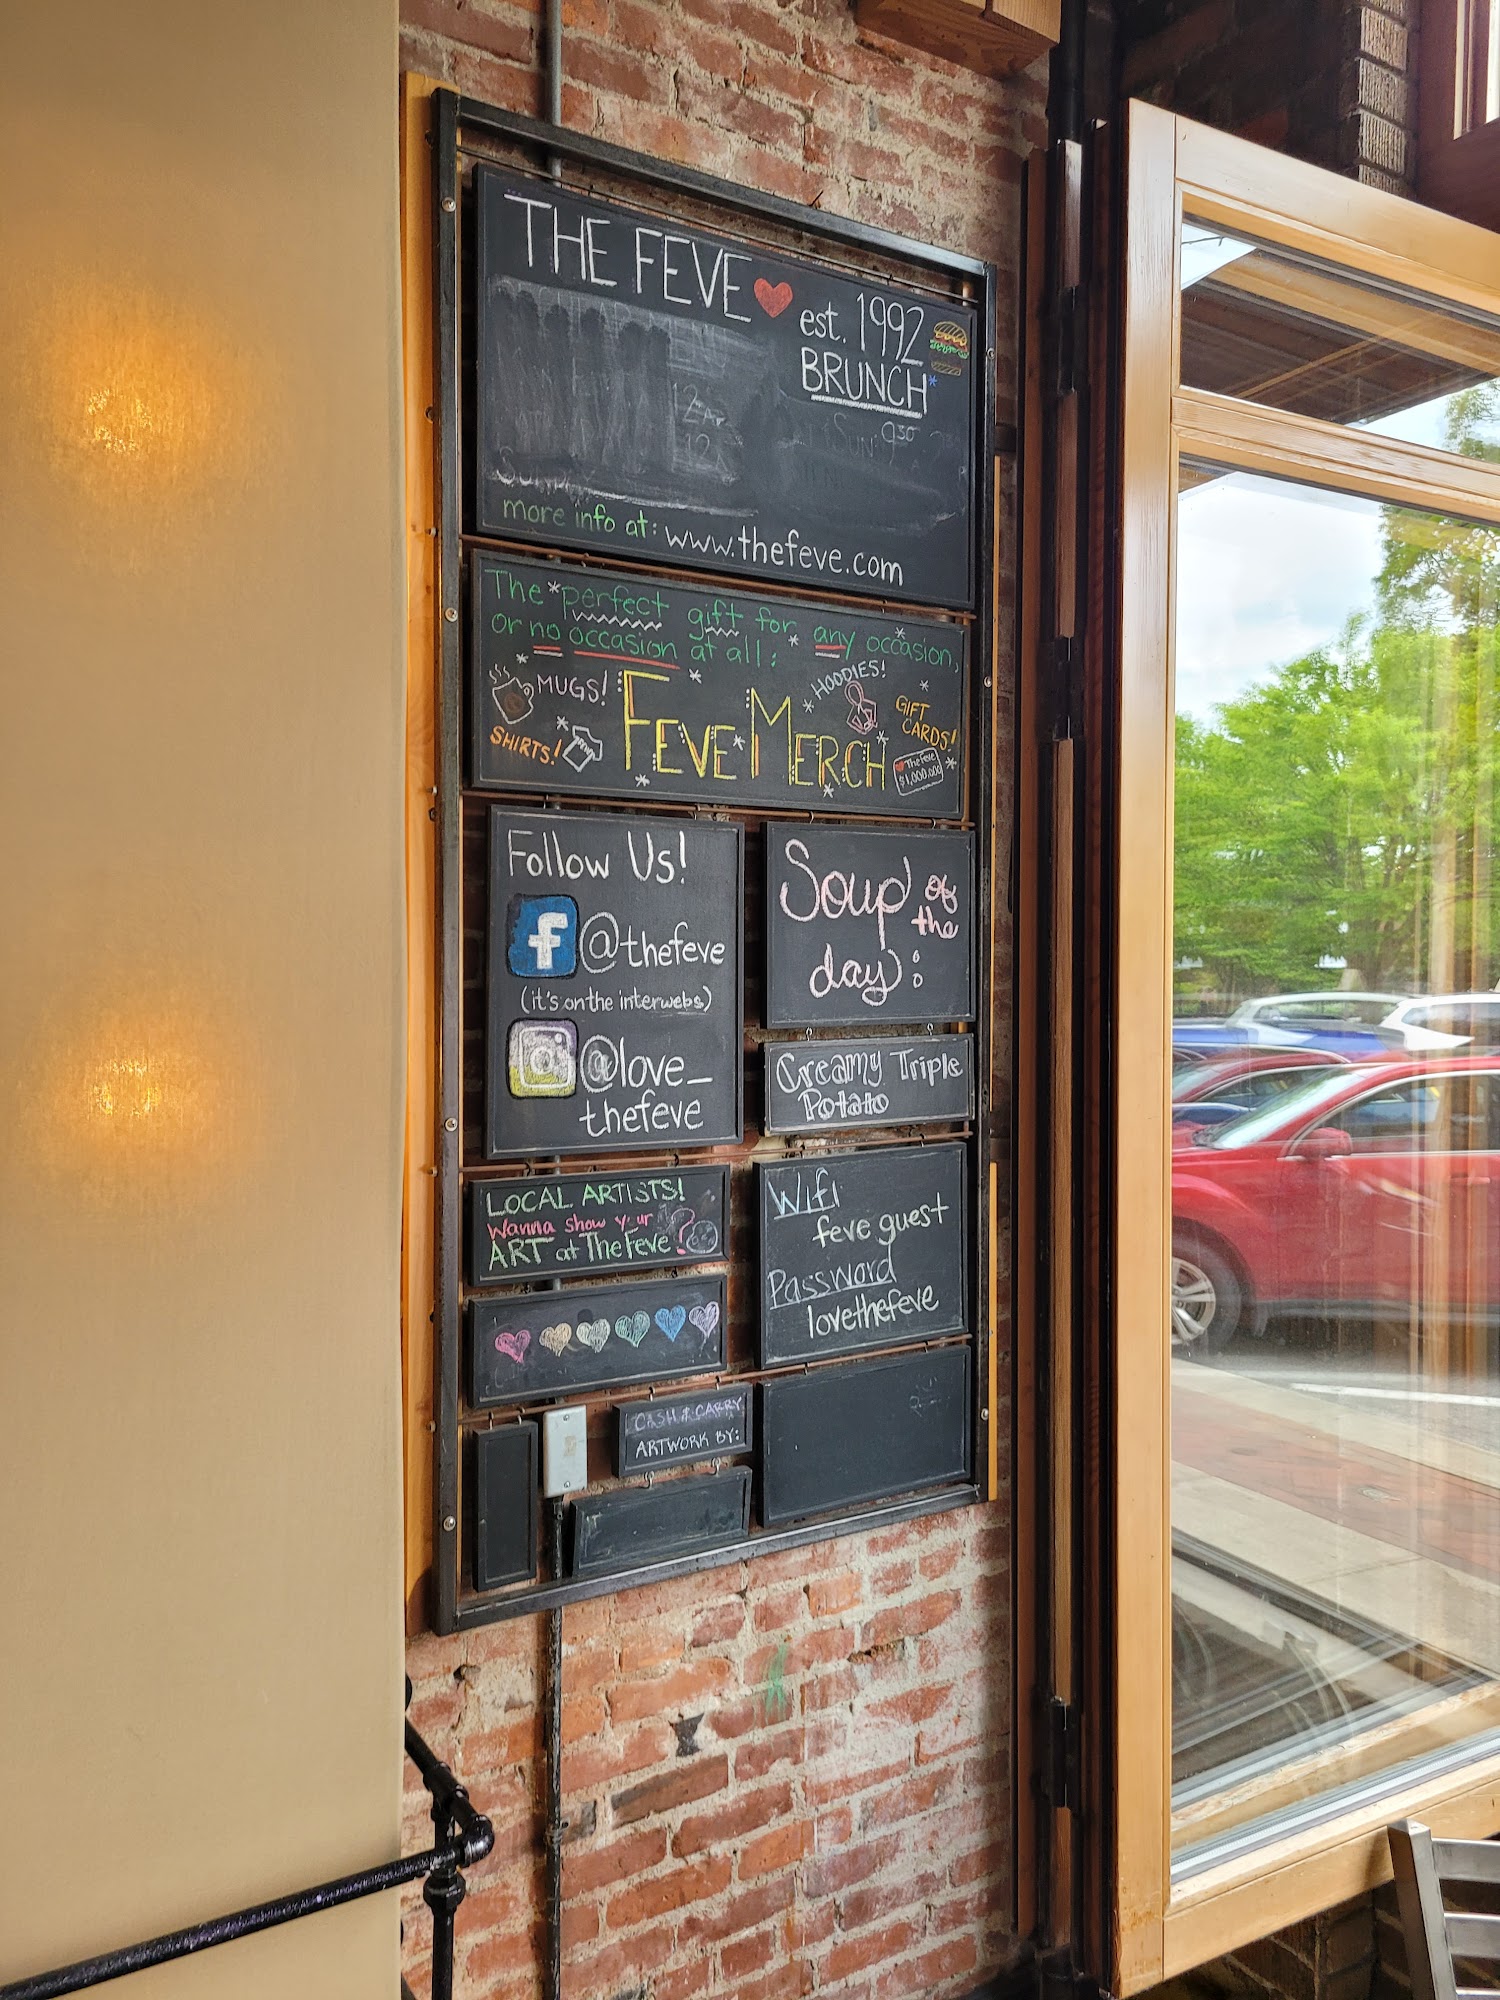 THE FEVE
est. 1992
BRUNCH*
SUN: 9:30
more info at: www.thefeve.com
The *perfect gift for any occasion,
or no occasion at all:
MUGS!
HOODIES!
GIFT
CARDS!
SHIRTS!
FEVE MERCH
The Feve
$1,000,000
Follow Us!
f @thefeve
(it's on the interwebs)
@love_
thefeve
Soup of
the
day:
Creamy Triple
Potato
LOCAL ARTISTS!
Wanna show your
ART at The Feve?
Wifi
feve guest
Password
lovethefeve
CASH & CARRY
ARTWORK BY: